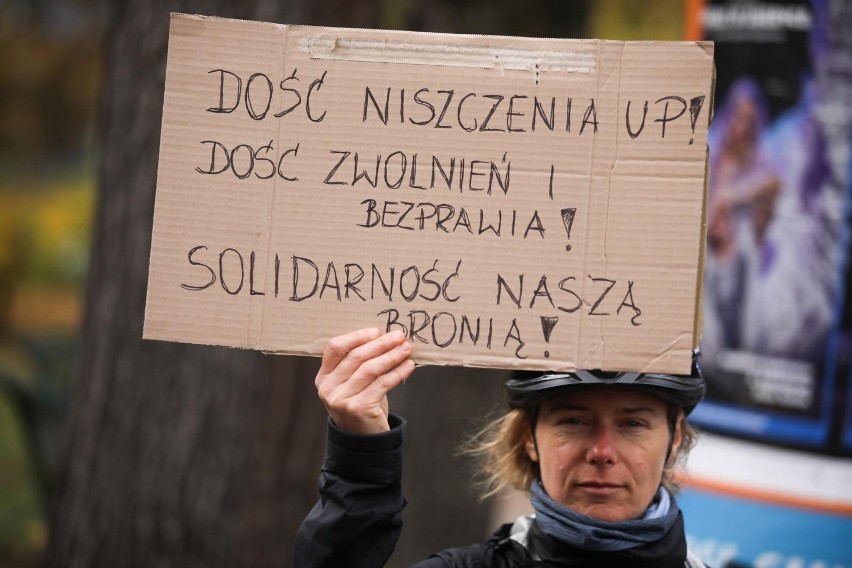 DOŚĆ NISZCZENIA UP!
DOŚĆ ZWOLNIEŃ I
BEZPRAWIA!
SOLIDARNOŚĆ NASZĄ
BRONIĄ!